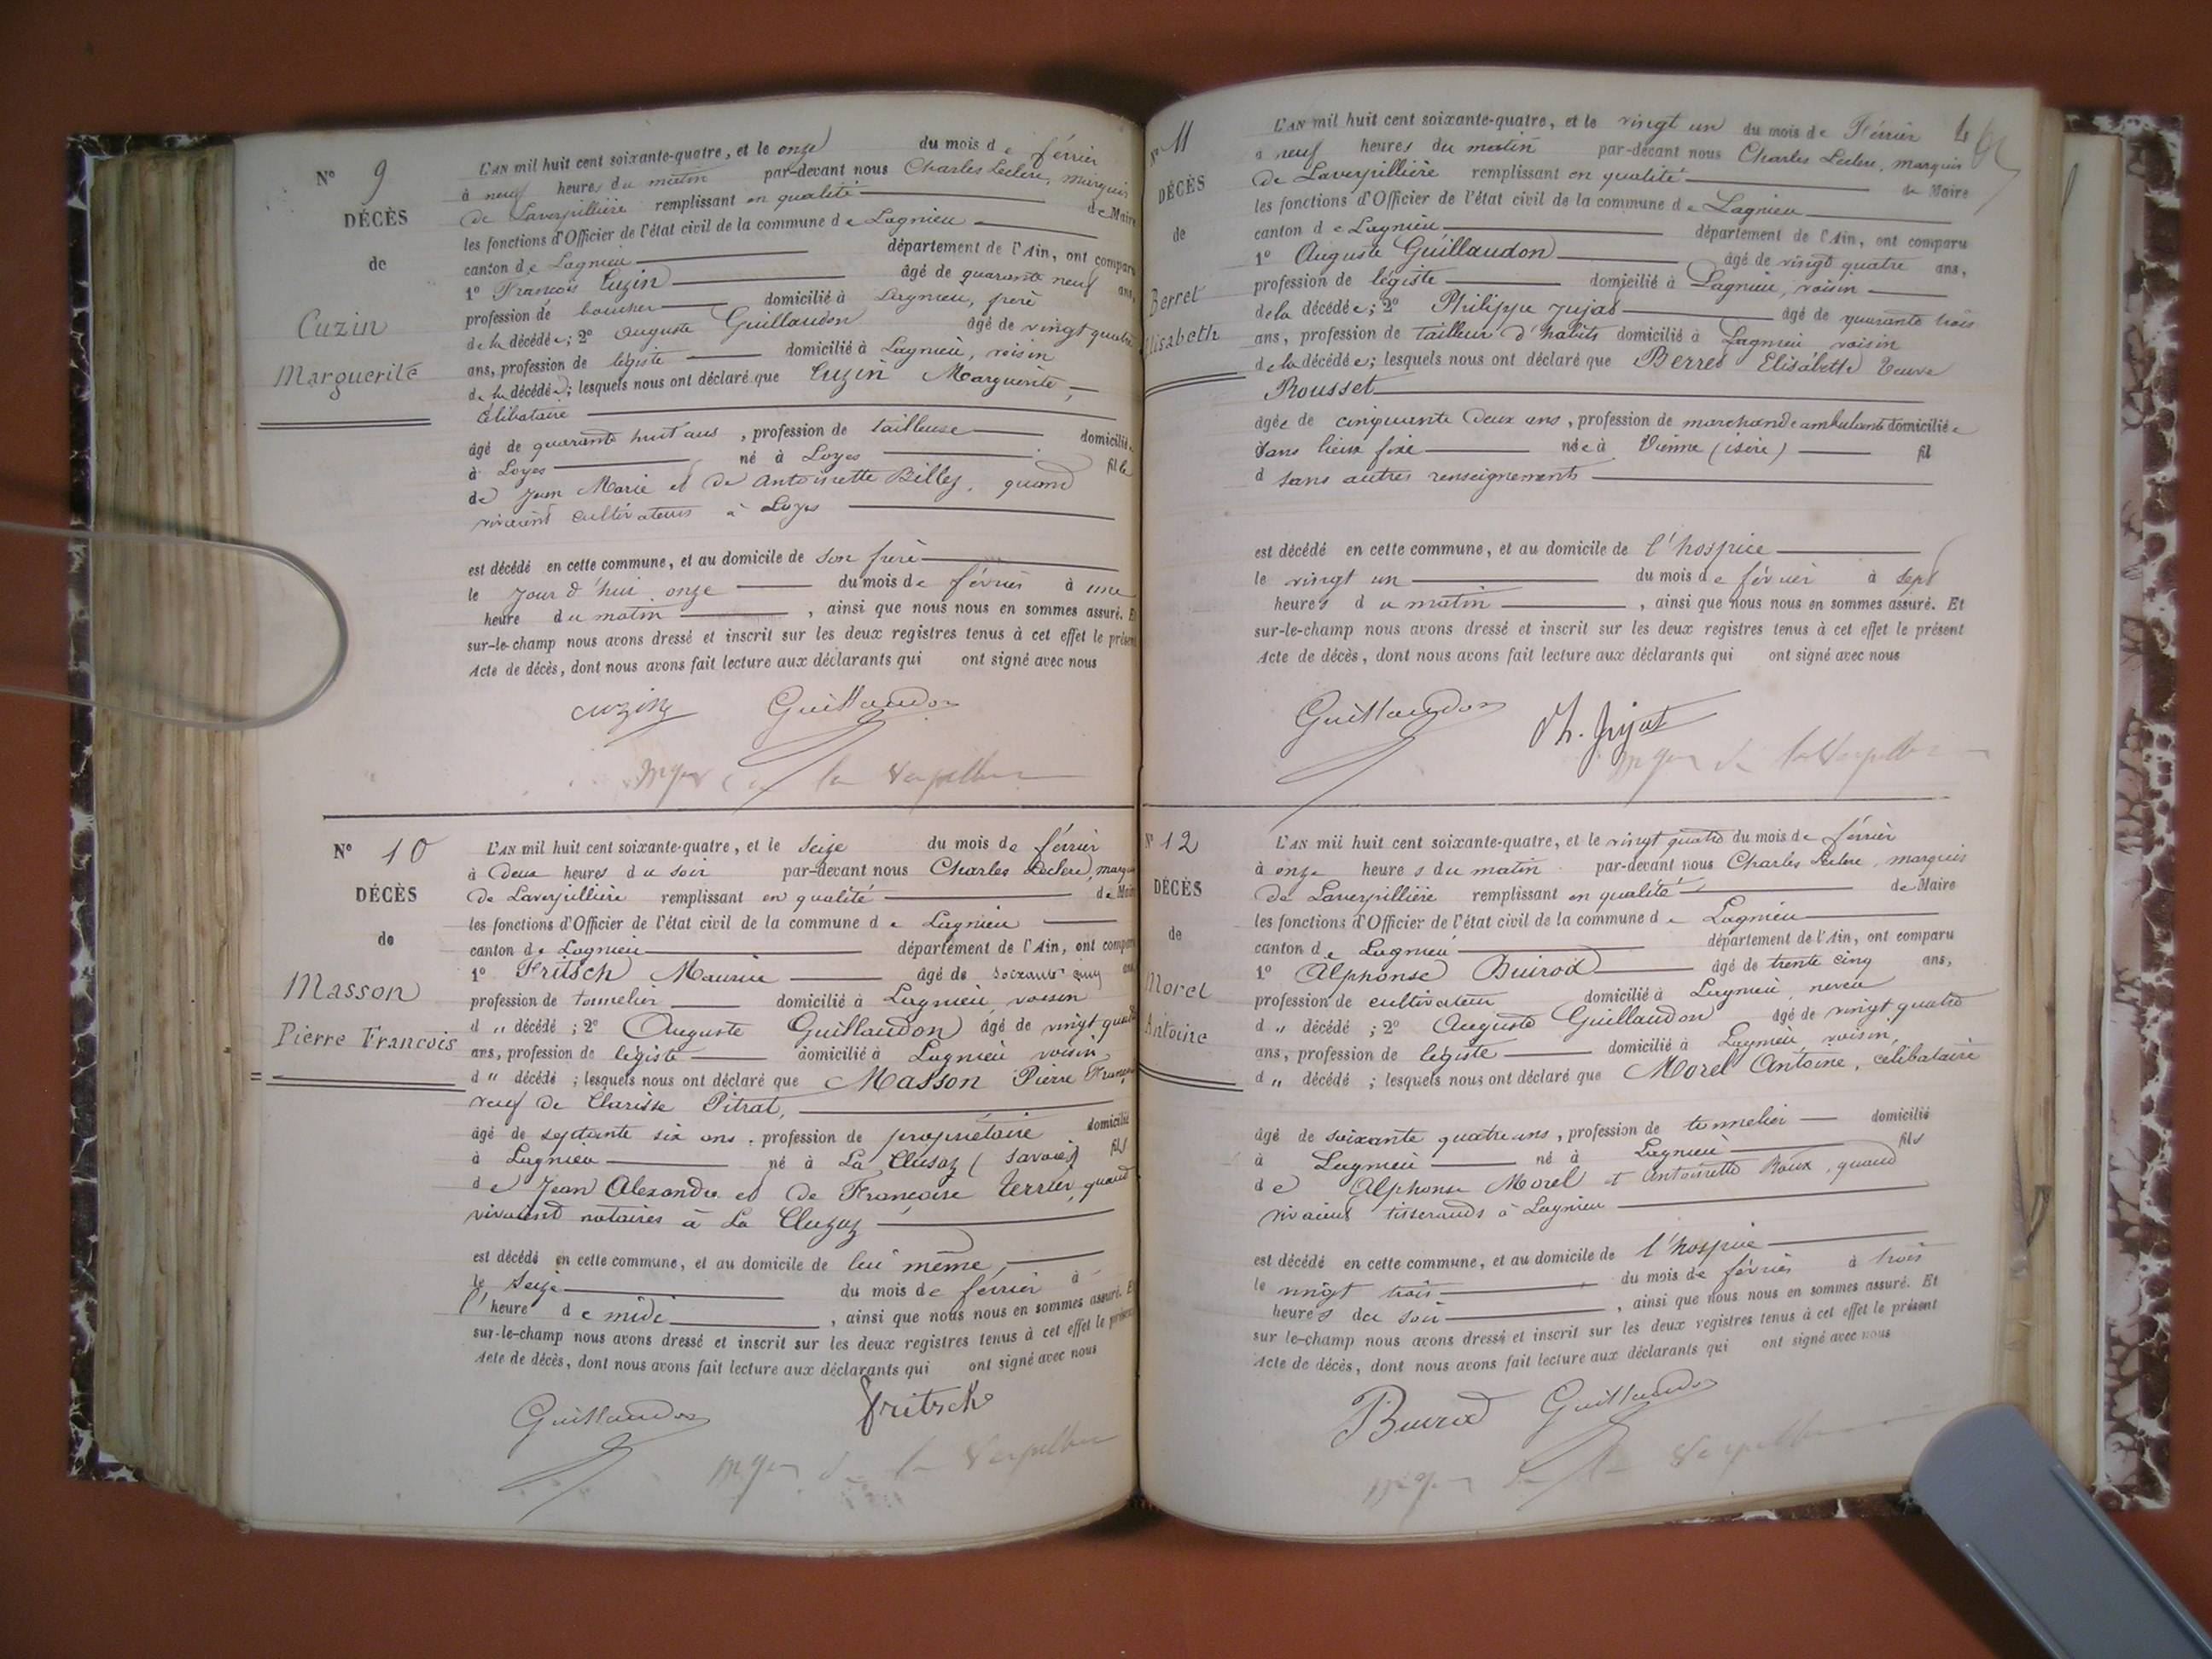 N° 9
DÉCÈS
de
Cuzin
Marguerite
L'AN mil huit cent soixante-quatre, et le onze du mois de février
à neuf heures du matin par-devant nous Charles Leclerc, marquis
de Laverpillière remplissant en qualité de Maire
les fonctions d'Officier de l'état civil de la commune de Lagnieu
canton de Lagnieu département de l'Ain, ont comparu
1° François Cuzin âgé de quarante neuf ans,
profession de boucher domicilié à Lagnieu, frère
de la décédée; 2° Auguste Guillaudon âgé de vingt quatre
ans, profession de légiste domicilié à Lagnieu, voisin
de la décédée; lesquels nous ont déclaré que Cuzin Marguerite,
célibataire
âgé de quarante huit ans, profession de tailleuse domiciliée
à Loyes né à Loyes fille
de Jean Marie et de Antoinette Billez, quand
vivaient cultivateurs à Loyes
est décédé en cette commune, et au domicile de son frère
le jour d'hui onze du mois de février à une
heure du matin, ainsi que nous nous en sommes assuré. Et
sur-le-champ nous avons dressé et inscrit sur les deux registres tenus à cet effet le présent
Acte de décès, dont nous avons fait lecture aux déclarants qui ont signé avec nous
Cuzin Guillaudon
de la Verpillière
N° 10
DÉCÈS
de
Masson
Pierre François
L'AN mil huit cent soixante-quatre, et le seize du mois de février
à deux heures du soir par-devant nous Charles Leclerc, marquis
de Laverpillière remplissant en qualité de Maire
les fonctions d'Officier de l'état civil de la commune de Lagnieu
canton de Lagnieu département de l'Ain, ont comparu
1° Fritsch Maurice âgé de soixante cinq ans
profession de tonnelier domicilié à Lagnieu voisin
d " décédé; 2° Auguste Guillaudon âgé de vingt quatre
ans, profession de légiste domicilié à Lagnieu voisin
d " décédé; lesquels nous ont déclaré que Masson Pierre François
veuf de Clarisse Pitrat,
âgé de septante six ans, profession de propriétaire domicilié
à Lagnieu né à La Clusaz (Savoie) fils
de Jean Alexandre et de Françoise Terrier, quand
vivaient notaires à La Cluzaz
est décédé en cette commune, et au domicile de lui même,
le seize du mois de février à
l'heure de midi, ainsi que nous nous en sommes assuré. Et
sur-le-champ nous avons dressé et inscrit sur les deux registres tenus à cet effet le présent
Acte de décès, dont nous avons fait lecture aux déclarants qui ont signé avec nous
Guillaudon Fritsch
de la Verpillière
N° 11
DÉCÈS
de
Berret
Elisabeth
L'AN mil huit cent soixante-quatre, et le vingt un du mois de Février
à neuf heures du matin par-devant nous Charles Leclerc, marquis
de Laverpillière remplissant en qualité de Maire
les fonctions d'Officier de l'état civil de la commune de Lagnieu
canton de Lagnieu département de l'Ain, ont comparu
1° Auguste Guillaudon âgé de vingt quatre ans,
profession de légiste domicilié à Lagnieu, voisin
de la décédée; 2° Philippe Jujat âgé de quarante trois
ans, profession de tailleur d'habits domicilié à Lagnieu voisin
de la décédée; lesquels nous ont déclaré que Berret Elisabeth veuve
Rousset
âgée de cinquante deux ans, profession de marchande ambulante domiciliée
sans lieux fixe née à Vienne (isère) fil
d sans autres renseignements
est décédé en cette commune, et au domicile de l'hospice
le vingt un du mois de février à sept
heures du matin, ainsi que nous nous en sommes assuré. Et
sur-le-champ nous avons dressé et inscrit sur les deux registres tenus à cet effet le présent
Acte de décès, dont nous avons fait lecture aux déclarants qui ont signé avec nous
Guillaudon Ph. Jujat
de la Verpillière
N° 12
DÉCÈS
de
Morel
Antoine
L'AN mil huit cent soixante-quatre, et le vingt quatre du mois de février
à onze heures du matin par-devant nous Charles Leclerc, marquis
de Laverpillière remplissant en qualité de Maire
les fonctions d'Officier de l'état civil de la commune de Lagnieu
canton de Lagnieu département de l'Ain, ont comparu
1° Alphonse Buirod âgé de trente cinq ans,
profession de cultivateur domicilié à Lagnieu, neveu
d " décédé; 2° Auguste Guillaudon âgé de vingt quatre
ans, profession de légiste domicilié à Lagnieu, voisin,
d " décédé; lesquels nous ont déclaré que Morel Antoine, célibataire
âgé de soixante quatre ans, profession de tonnelier domicilié
à Lagnieu né à Lagnieu fils
de Alphonse Morel et Antoinette Roux, quand
vivaient tisserands à Lagnieu
est décédé en cette commune, et au domicile de l'hospice
le vingt trois du mois de février à trois
heures du soir, ainsi que nous nous en sommes assuré. Et
sur le-champ nous avons dressé et inscrit sur les deux registres tenus à cet effet le présent
Acte de décès, dont nous avons fait lecture aux déclarants qui ont signé avec nous
Buirod Guillaudon
de la Verpillière